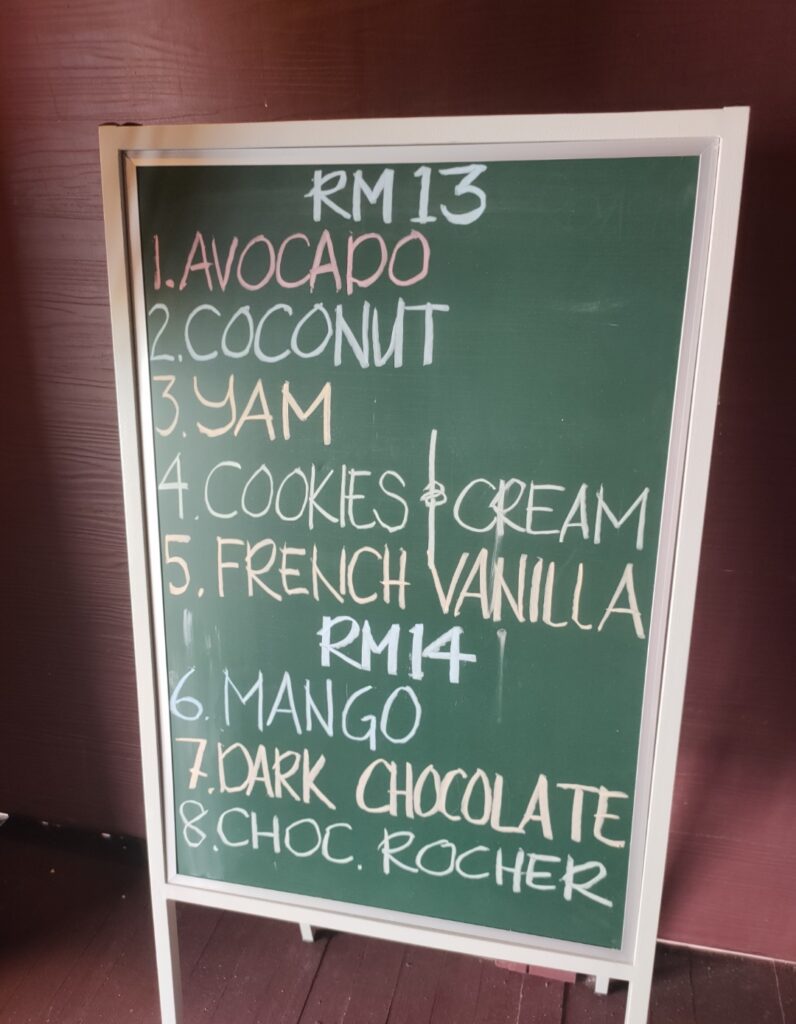 RM 13
1. AVOCADO
2. COCONUT
3. YAM
4. COOKIES & CREAM
5. FRENCH VANILLA
RM14
6. MANGO
7. DARK CHOCOLATE
8. CHOC. ROCHER